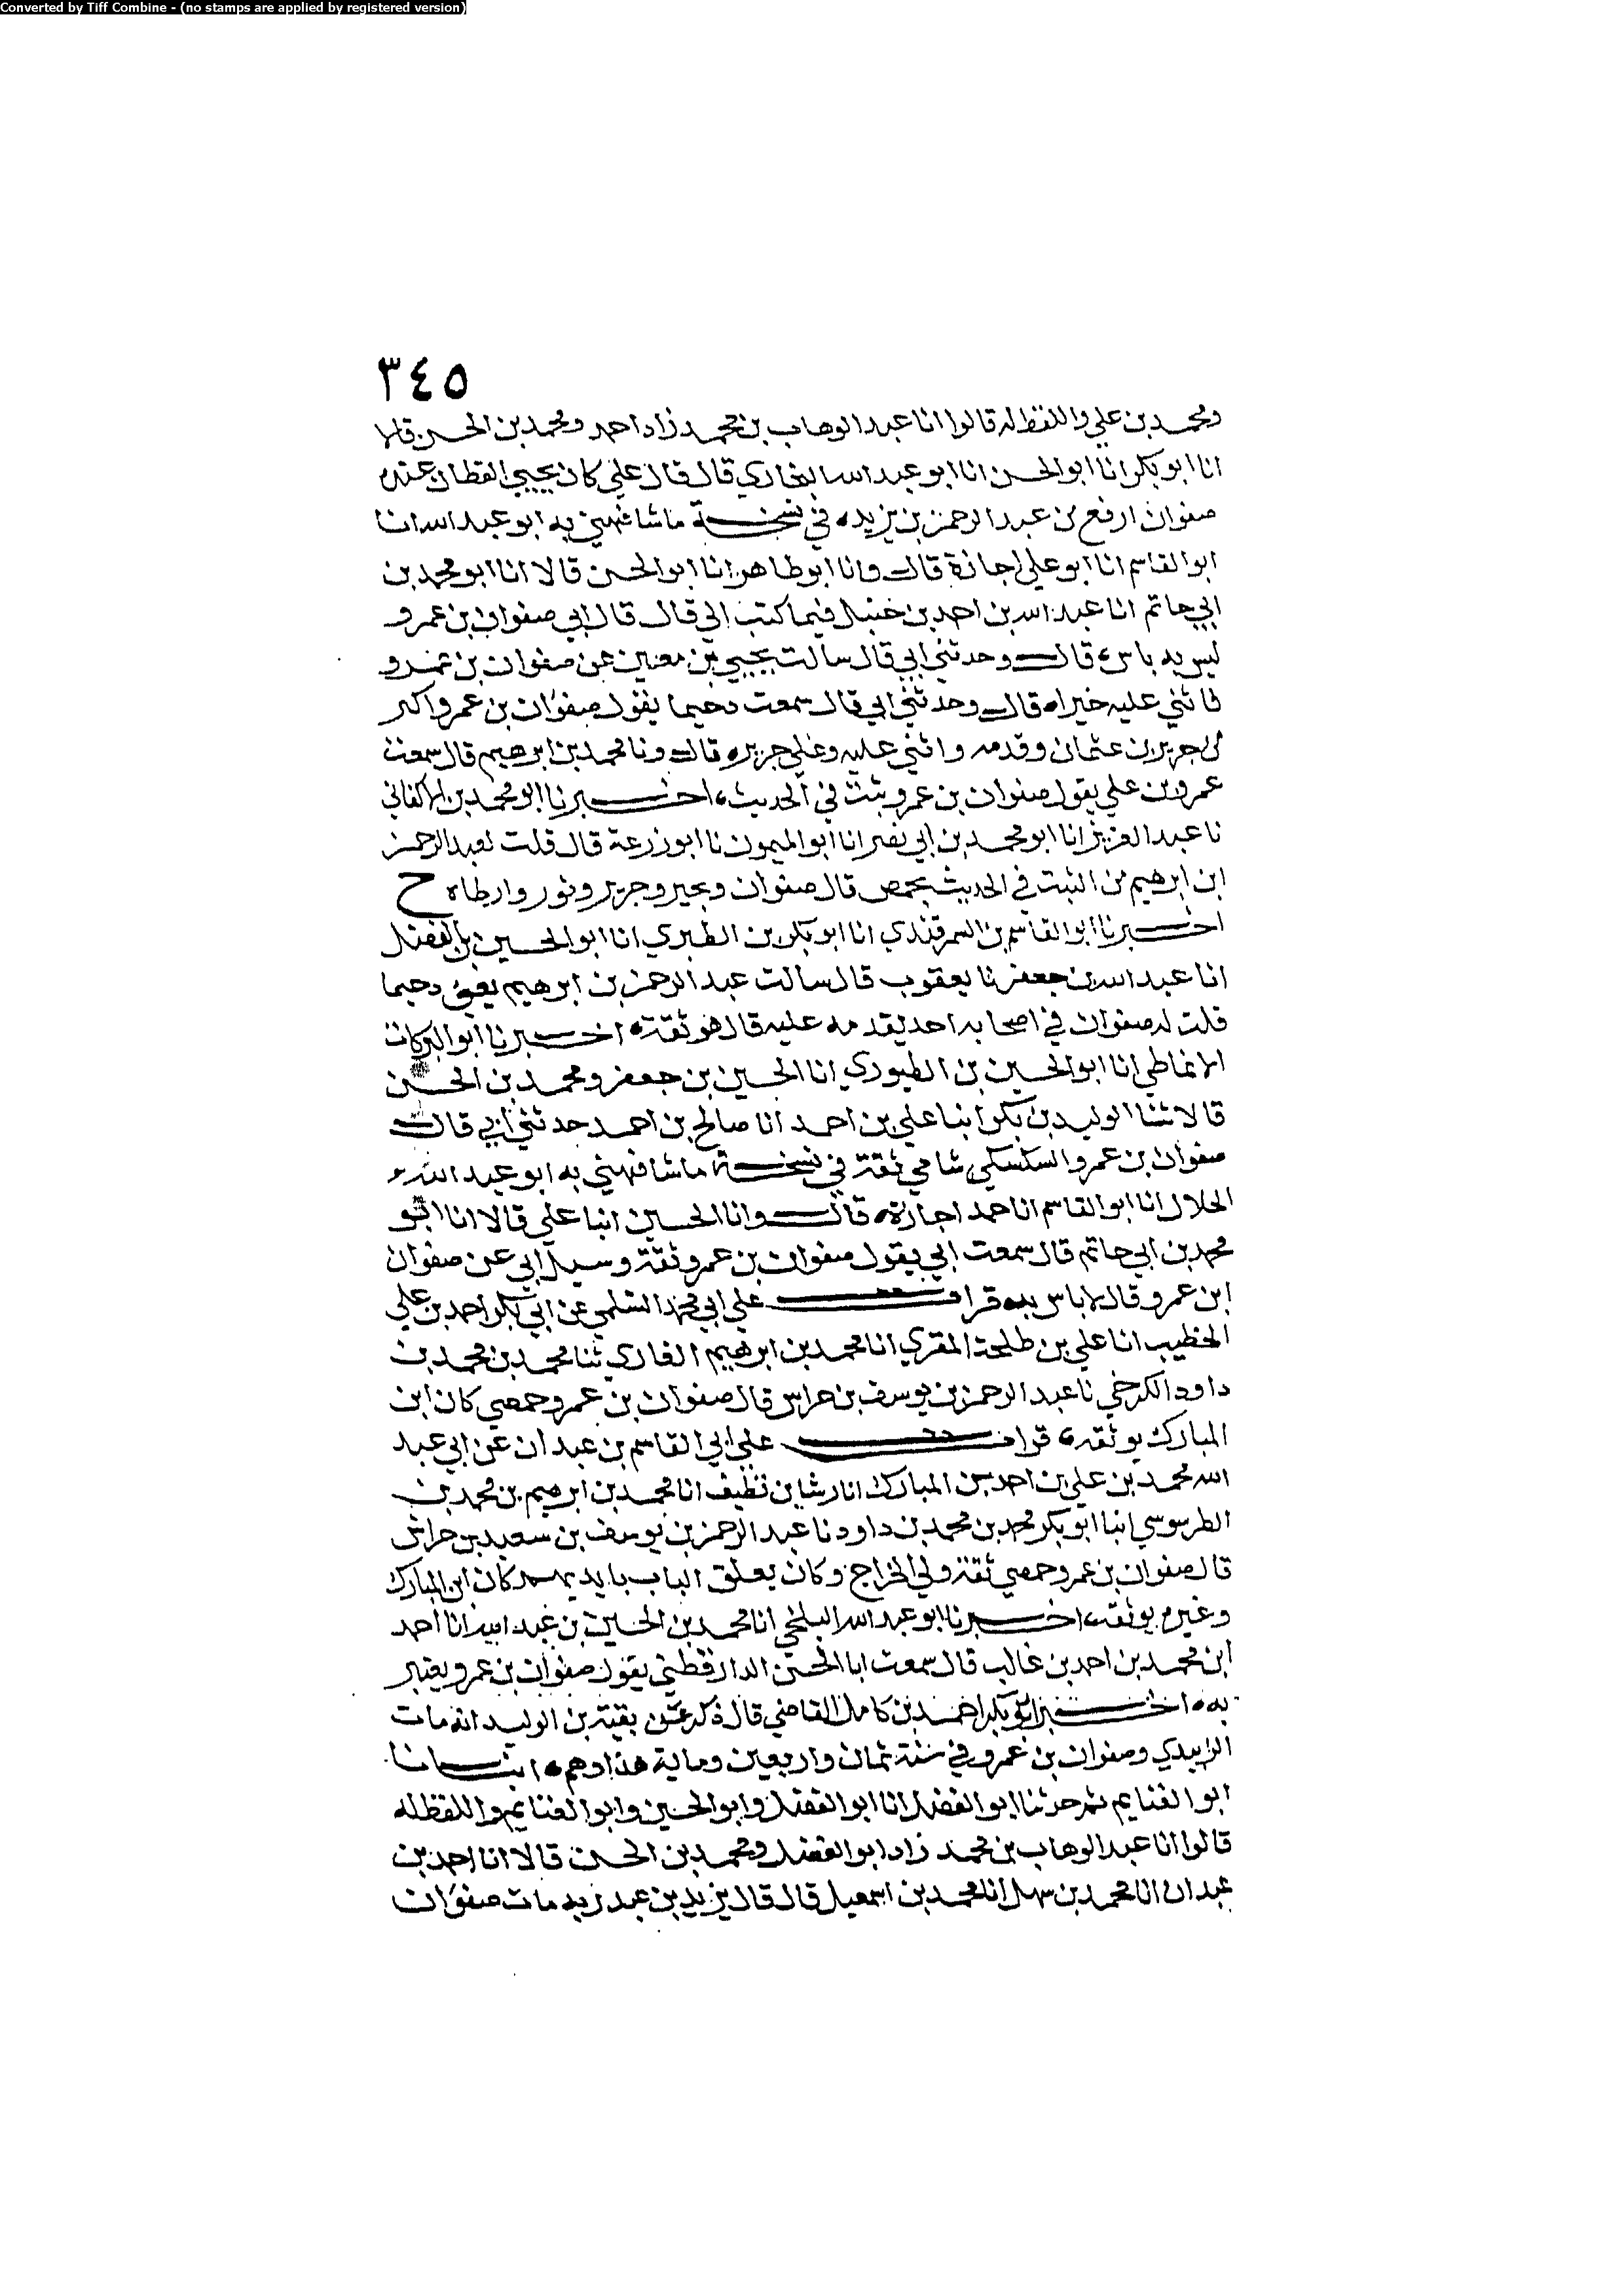 Converted by Tiff Combine - (no stamps are applied by registered version)
٣٤٥
ومحمد بن علي واللفظ له قالوا انا عبد الوهاب بن محمد زاد احمد ومحمد بن الحسن قالا
انا ابو بكر انا ابو الحسن انا ابو عبد الله البخاري قال قال علي كان يحيى القطان عنده
صفوان ارفع من عبد الرحمن بن يزيد، في نسخة ما شافهني به ابو عبد الله انا
ابو القاسم انا ابو علي اجازة قال وانا ابو طاهر انا ابو الحسن قالا انا ابو محمد بن
ابي حاتم انا عبد الله بن احمد بن حنبل فيما كتب الي قال قال ابي صفوان بن عمرو
ليس به باس، قال وحدثني ابي قال سالت يحيى بن معين عن صفوان بن عمرو
فاثنى عليه خيرا، قال وحدثني ابي قال سمعت دحيما يقول صفوان بن عمرو اكبر
من حريز بن عثمان وقدمه واثنى عليه وعلى حريز، قال ونا محمد بن ابرهيم قال سمعت
عمرو بن علي يقول صفوان بن عمرو ثبت في الحديث، اخبرنا ابو محمد بن الاكفاني
نا عبد العزيز انا ابو محمد بن ابي نصر انا ابو الميمون نا ابو زرعة قال قلت لعبد الرحمن
ابن ابرهيم من الثبت في الحديث بحمص قال صفوان وبحير وحريز وثور وارطاه ح
اخبرنا ابو القاسم بن السمرقندي انا ابو بكر بن الطبري انا ابو الحسين بن الفضل
انا عبد الله بن جعفر نا يعقوب قال سالت عبد الرحمن بن ابرهيم يعني دحيما
قلت له صفوان في اصحابه احد يقدمه عليه قال هو ثقة، اخبرنا ابو البركات
الانماطي انا ابو الحسين بن الطيوري انا الحسين بن جعفر ومحمد بن الحسن
قالا ثنا الوليد بن بكر انبا علي بن احمد انا صالح بن احمد حدثني ابي قال
صفوان بن عمرو السكسكي شامي ثقة في نسخة ما شافهني به ابو عبد الله
الخلال انا ابو القاسم انا حمد اجازة، قال وانا الحسين انبا علي قالا انا ابو
محمد بن ابي حاتم قال سمعت ابي يقول صفوان بن عمرو ثقة وسيل ابي عن صفوان
ابن عمرو قال لا باس به، قرات علي ابي محمد السلمي عن ابي بكر احمد بن علي
الخطيب انا علي بن طلحة المقري انا محمد بن ابرهيم الغازي ثنا محمد بن محمد بن
داود الكرخي نا عبد الرحمن بن يوسف بن خراش قال صفوان بن عمرو حمصي كان ابن
المبارك يوثقه، قرات علي ابي القاسم بن عبدان عن ابي عبد
الله محمد بن علي بن احمد بن المبارك انا رشا بن نظيف انا محمد بن ابرهيم بن محمد بن
الطرسوسي انبا ابو بكر محمد بن محمد بن داود نا عبد الرحمن بن يوسف بن سعيد بن خراش
قال صفوان بن عمرو حمصي ثقة ولي الخراج وكان يعلق الباب بايديهم كان ابن المبارك
وغيره يوثقه، اخبرنا ابو عبد الله البلخي انا محمد بن الحسين بن عبد الله انا احمد
ابن محمد بن احمد بن غالب قال سمعت ابا الحسن الدارقطني يقول صفوان بن عمرو يعتبر
به، اخبرنا ابو بكر احمد بن كامل القاضي قال ذكر عن بقية بن الوليد انه مات
الزبيدي وصفوان بن عمرو في سنة ثمان واربعين ومايه هذا وهم، انبانا
ابو الغنايم ثم حدثنا ابو الفضل انا ابو الفضل وابو الحسين وابو الغنايم واللفظ له
قالوا انا عبد الوهاب بن محمد زاد ابو الفضل ومحمد بن الحسن قالا انا احمد بن
عبدان انا محمد بن سهل انا محمد بن اسمعيل قال قال يزيد بن عبد ربه مات صفوان